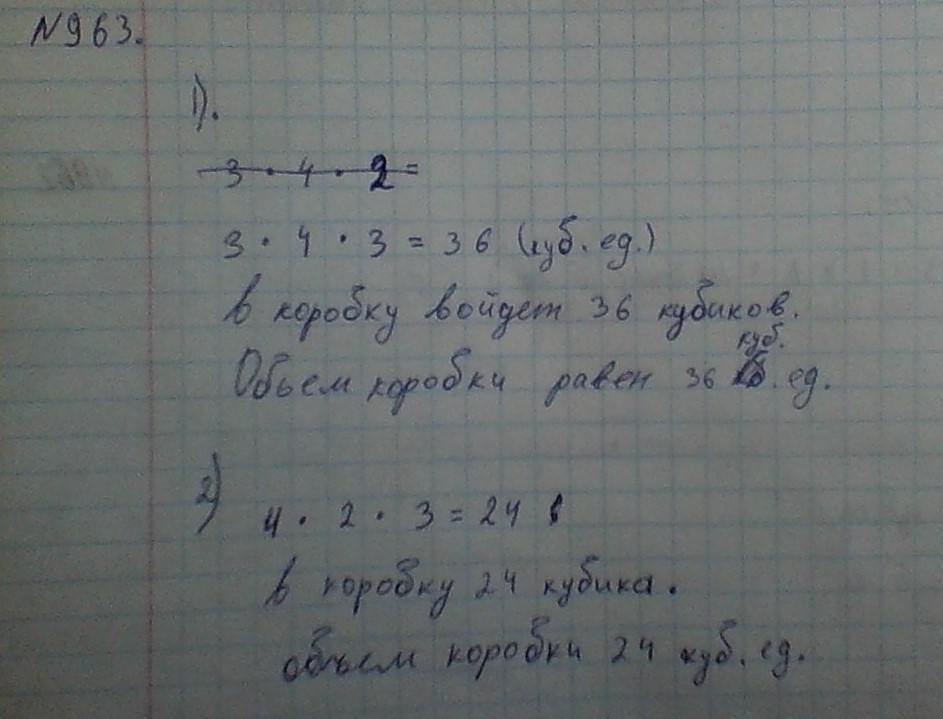 №963.
1).
3 · 4 · 2 =
3 · 4 · 3 = 36 (куб. ед.)
в коробку войдет 36 кубиков.
Объем коробки равен 36 куб. ед.
2)
4 · 2 · 3 = 24
в коробку 24 кубика.
объем коробки 24 куб. ед.